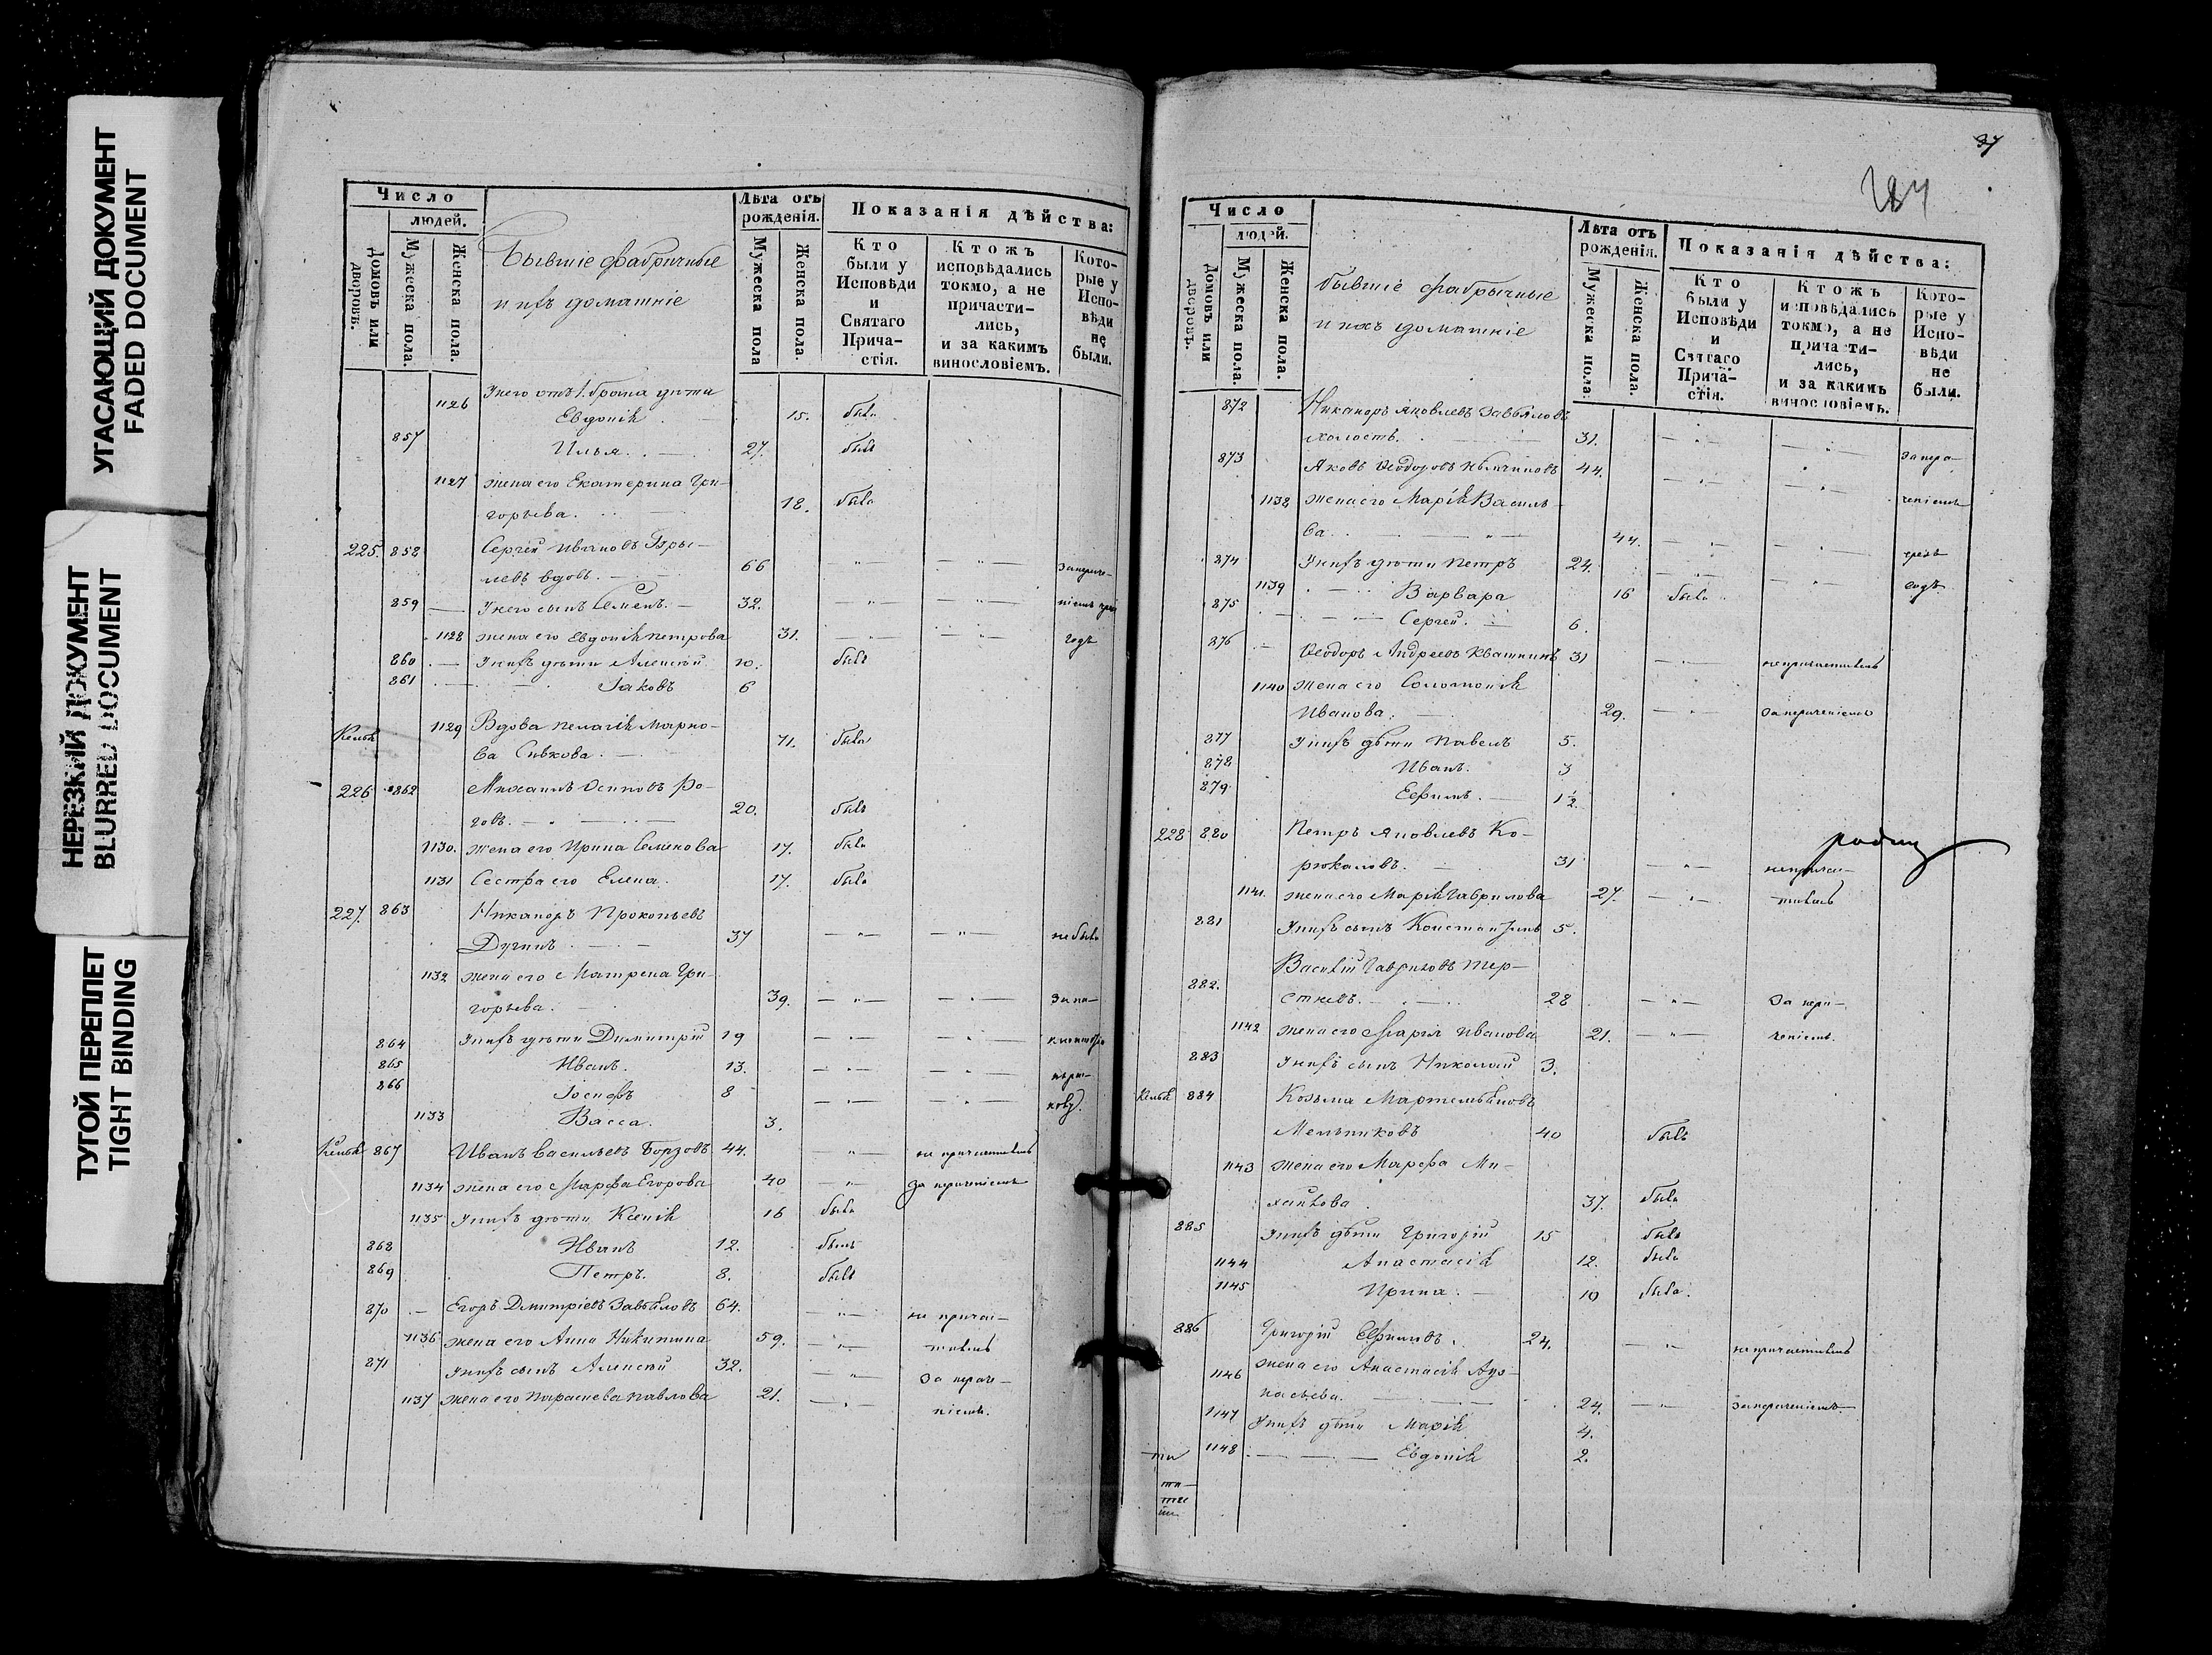 УГАСАЮЩИЙ ДОКУМЕНТ
FADED DOCUMENT
НЕРЕЗКИЙ ДОКУМЕНТ
BLURRED DOCUMENT
ТУГОЙ ПЕРЕПЛЕТ
TIGHT BINDING
Число
людей.
Домовъ или дворовъ.
Мужеска пола.
Женска пола.
Бывшіе фабричные
и ихъ домашніе
Лѣта отъ рожденія.
Мужеска пола
Женска пола.
Показанія дѣйства:
Кто были у Исповѣди и Святаго Прича-стія.
Ктожъ исповѣдались токмо, а не причасти-лись, и за какимъ винословіемъ.
Кото-рые у Испо-вѣди не были.
1126 У него отъ 1. брата дѣти
Евдокія 15. была
857 Илья 27. былъ
1127 жена его Екатерина Гри-
горьева. 18. была
225. 858 Сергей Ивановъ
левъ вдовъ. 66
859 У него сынъ Семенъ. 32.
1128 жена его Евдокія Петрова 31. годъ
860 У нихъ дѣти Алексѣй 10. былъ
861 Іаковъ 6
Келья 1129 Вдова Пелагія Марко-
ва Сивкова. 71. была
226 862 Михаилъ Осиповъ Ро-
говъ. 20. былъ
1130. жена его Ирина Семенова 17. была
1131 Сестра его Елена. 17. была
227. 863 Никаноръ Прокопьевъ
Дугинъ 37 не былъ
1132 жена его Матрена Гри-
горьева. 39.
864 У нихъ дѣти Димитрій 19
865 Иванъ. 13.
866 Іосифъ 8
1133 Васса. 3.
Келья 867 Иванъ Васильевъ Борзовъ 44. не причастились
1134 жена его Марфа Егорова 40 за
1135 У нихъ дѣти Ксенія 16 была
868 Иванъ 12. былъ
869 Петръ. 8. былъ
870 Егоръ Дмитріевъ Завьяловъ 64. не причас-
1136 жена его Анна Никитина 59. тились
871 У нихъ сынъ Алексѣй 32. за
1137 жена его Параскева Павлова 21.
37
284
Число
людей.
Домовъ или дворовъ.
Мужеска пола.
Женска пола.
бывшіе фабрычные
и ихъ домашніе
Лѣта отъ рожденія.
Мужеска пола.
Женска пола.
Показанія дѣйства:
Кто были у Исповѣди и Святаго Прича-стія.
Ктожъ исповѣдались токмо, а не причасти-лись, и за какимъ винословіемъ.
Кото-рые у Испо-вѣди не были.
872 Никаноръ Яковлевъ Завьяловъ
холостъ. 31.
873 Яковъ Ѳеодоровъ 44.
1138 жена его Марія Василь-
ва. 44.
874 У нихъ дѣти Петръ 24.
1139 Варвара 16 была
875 Сергей. 6.
876 Ѳеодоръ Андреевъ Квашнинъ 31 не причастились
1140 жена его Соломонія
Иванова. 29.
877 У нихъ дѣти Павелъ 5.
878 Иванъ. 3
879 Ефимъ. 1½
228 880 Петръ Яковлевъ Ко-
рюкаловъ. 31
1141. жена его Марія Гаврилова 27.
881 У нихъ сынъ Константинъ 5.
882. Василій Гавриловъ
28
1142 жена его Марія Иванова 21.
883 У нихъ сынъ Николай 3.
Келья 884 Козьма Мартемьяновъ
Мельниковъ 40 былъ
1143 жена его Марфа Ми-
хайлова 37. была
885 У нихъ дѣти Григорій 15 былъ
1144 Анастасія 12. была
1145 Ирина. 10 была.
886 Григорій Ефимовъ. 24. не причастились
1146 жена его Анастасія
24.
1147 У нихъ дѣти Марія 4.
1148 Евдокія 2.